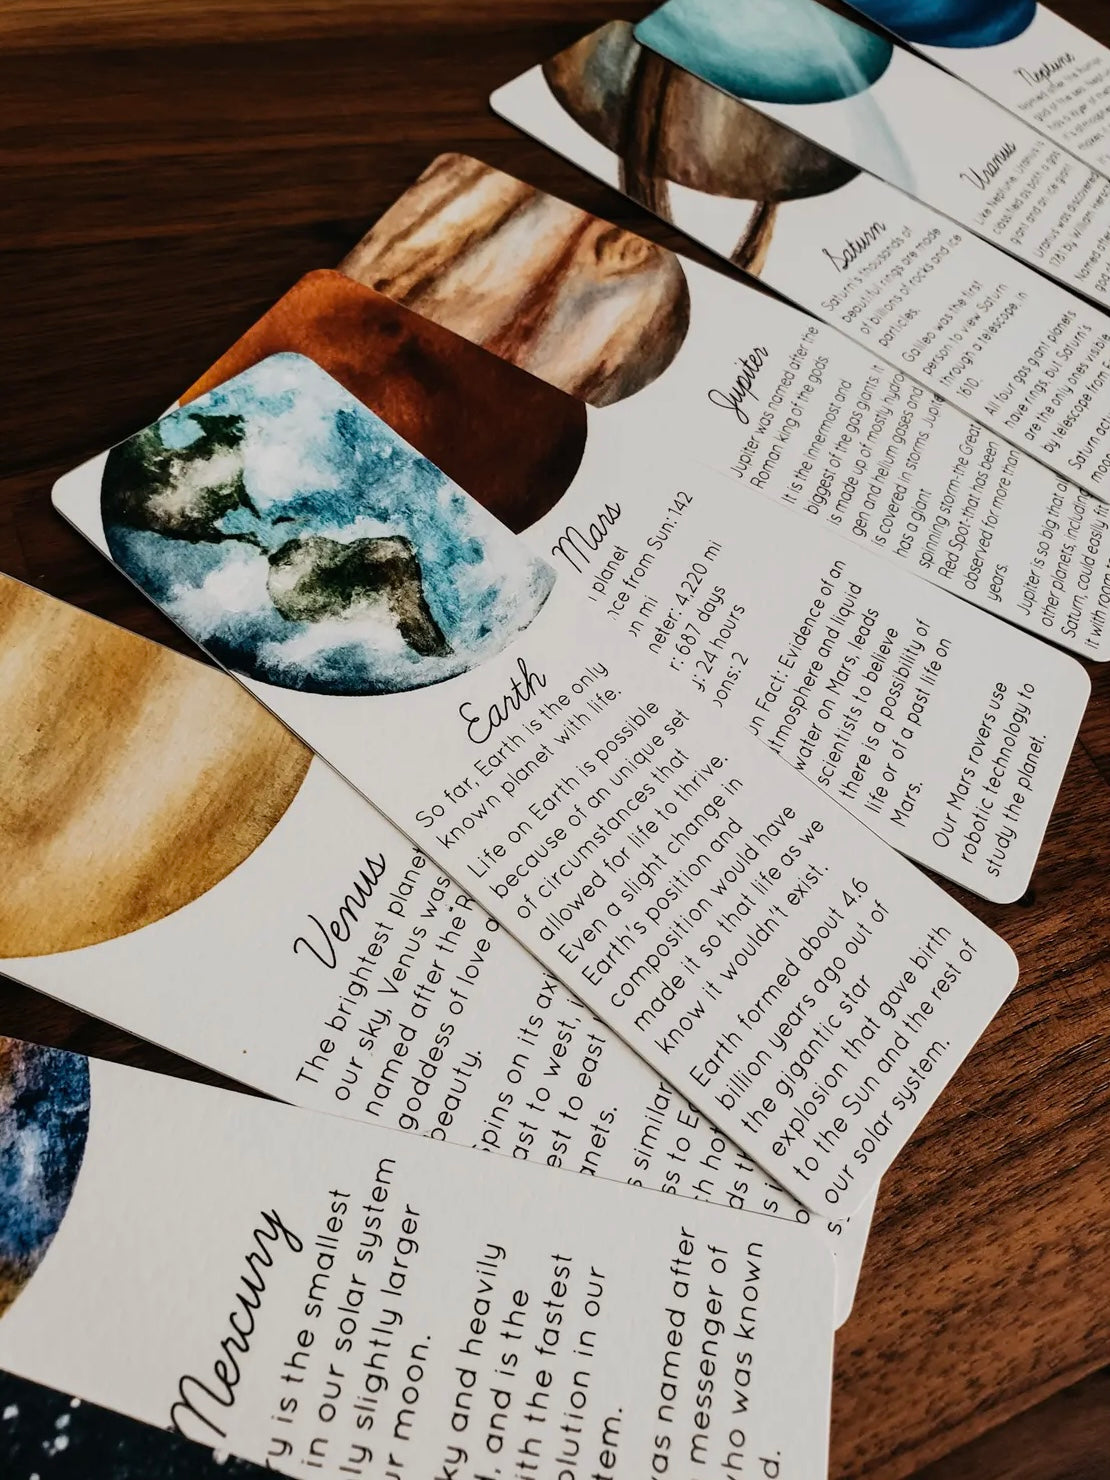 Neptune
Named after the Roman
god of the sea, Nep
has a layer of me
it's atmosphere
makes i
Uranus
Like Neptune, Uranus is
classified as both a gas
giant and an ice giant.
Uranus was discovered
1781 by William Hersc
Named after
god
Saturn
Saturn's thousands of
beautiful rings are made
of billions of rocks and ice
particles.
Galileo was the first
person to view Saturn
through a telescope, in
1610.
All four gas giant planets
have rings, but Saturn's
are the only ones visible
by telescope from E
Saturn act
moon
Jupiter
Jupiter was named after the
Roman king of the gods
It is the innermost and
biggest of the gas giants. It
is made up of mostly hydro
gen and helium gases and
is covered in storms. Jupite
has a giant
spinning storm-the Great
Red Spot-that has been
observed for more than
years.
Jupiter is so big that al
other planets, including
Saturn, could easily fit
it with room t
Mars
planet
ce from Sun: 142
n mi
neter: 4,220 mi
r: 687 days
y: 24 hours
ons: 2
un Fact: Evidence of an
atmosphere and liquid
water on Mars, leads
scientists to believe
there is a possibility of
life or of a past life on
Mars.
Our Mars rovers use
robotic technology to
study the planet.
Earth
So far, Earth is the only
known planet with life.
Life on Earth is possible
because of an unique set
of circumstances that
allowed for life to thrive.
Even a slight change in
Earth's position and
composition would have
made it so that life as we
know it wouldn't exist.
Earth formed about 4.6
billion years ago out of
the gigantic star
explosion that gave birth
to the Sun and the rest of
our solar system.
Venus
The brightest planet
our sky, Venus was
named after the R
goddess of love a
beauty.
pins on its axi
ast to west, i
est to east
anets.
s similar
ss to Ea
ch hot
ds th
s i
Mercury
ry is the smallest
in our solar system
ly slightly larger
ur moon.
ky and heavily
d, and is the
ith the fastest
olution in our
tem.
was named after
messenger of
who was known
d.